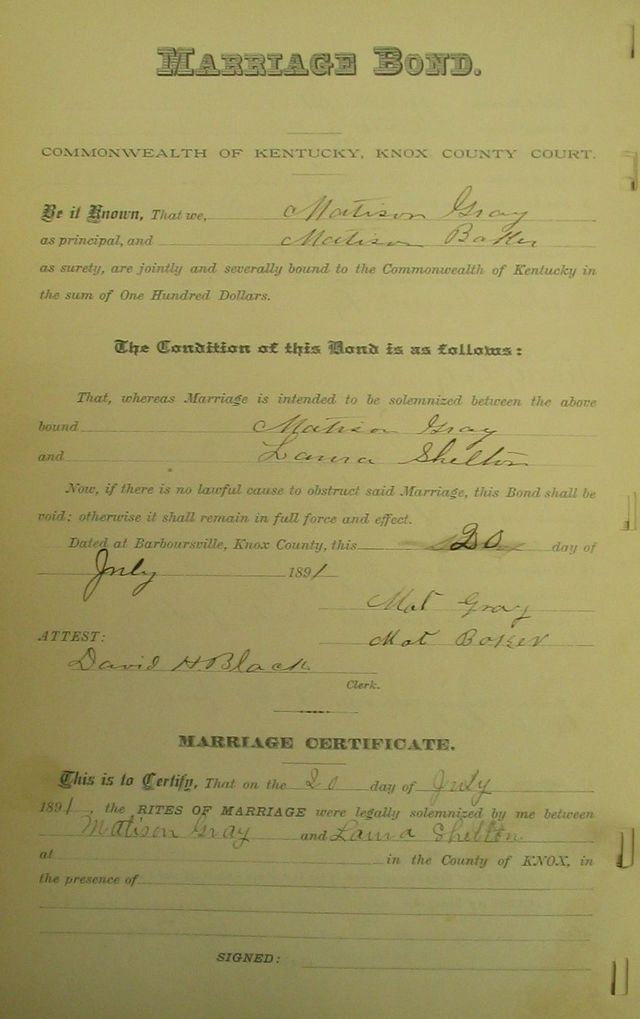 MARRIAGE BOND.
COMMONWEALTH OF KENTUCKY, KNOX COUNTY COURT.
Be it Known, That we, Matison Gray
as principal, and Matison Baker
as surety, are jointly and severally bound to the Commonwealth of Kentucky in
the sum of One Hundred Dollars.
The Condition of this Bond is as follows:
That, whereas Marriage is intended to be solemnized between the above
bound Matison Gray
and Laura Shelton
Now, if there is no lawful cause to obstruct said Marriage, this Bond shall be
void; otherwise it shall remain in full force and effect.
Dated at Barboursville, Knox County, this 20 day of
July 1891
Mat Gray
ATTEST: Mat Baker
David H. Black
Clerk.
MARRIAGE CERTIFICATE.
This is to Certify, That on the 20 day of July
1891, the RITES OF MARRIAGE were legally solemnized by me between
Matison Gray and Laura Shelton
at in the County of KNOX, in
the presence of
SIGNED: